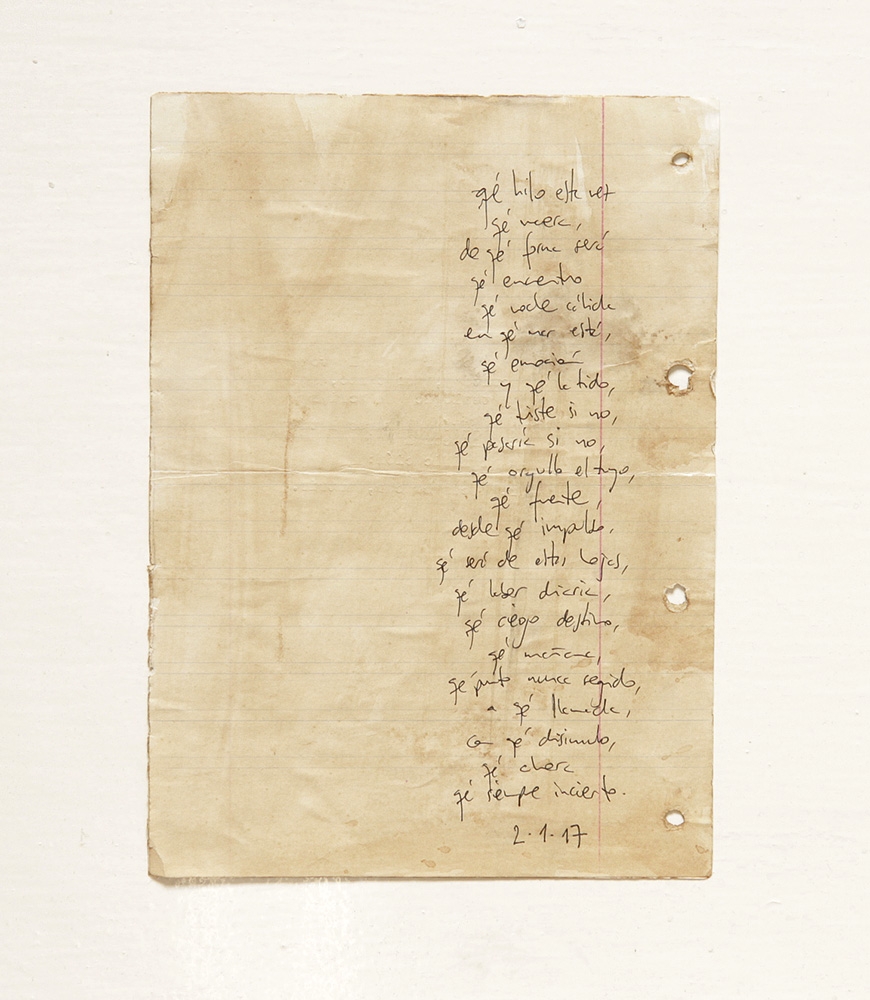 qé hilo esta vez
qé acera,
de qé forma será
qé encuentro
qé noche cálida
en qé mar esté,
qé emoción
y qé latido,
qé triste si no,
qé pasaría si no,
qé orgullo el tuyo,
qé
desde qé impulso.
qé será de estas hojas,
qé labor diaria,
qé ciego destino,
qé mañana,
qé punto nunca seguido,
a qé llamada,
con qé disimulo,
qé ahora
qé siempre incierto.
2·1·17